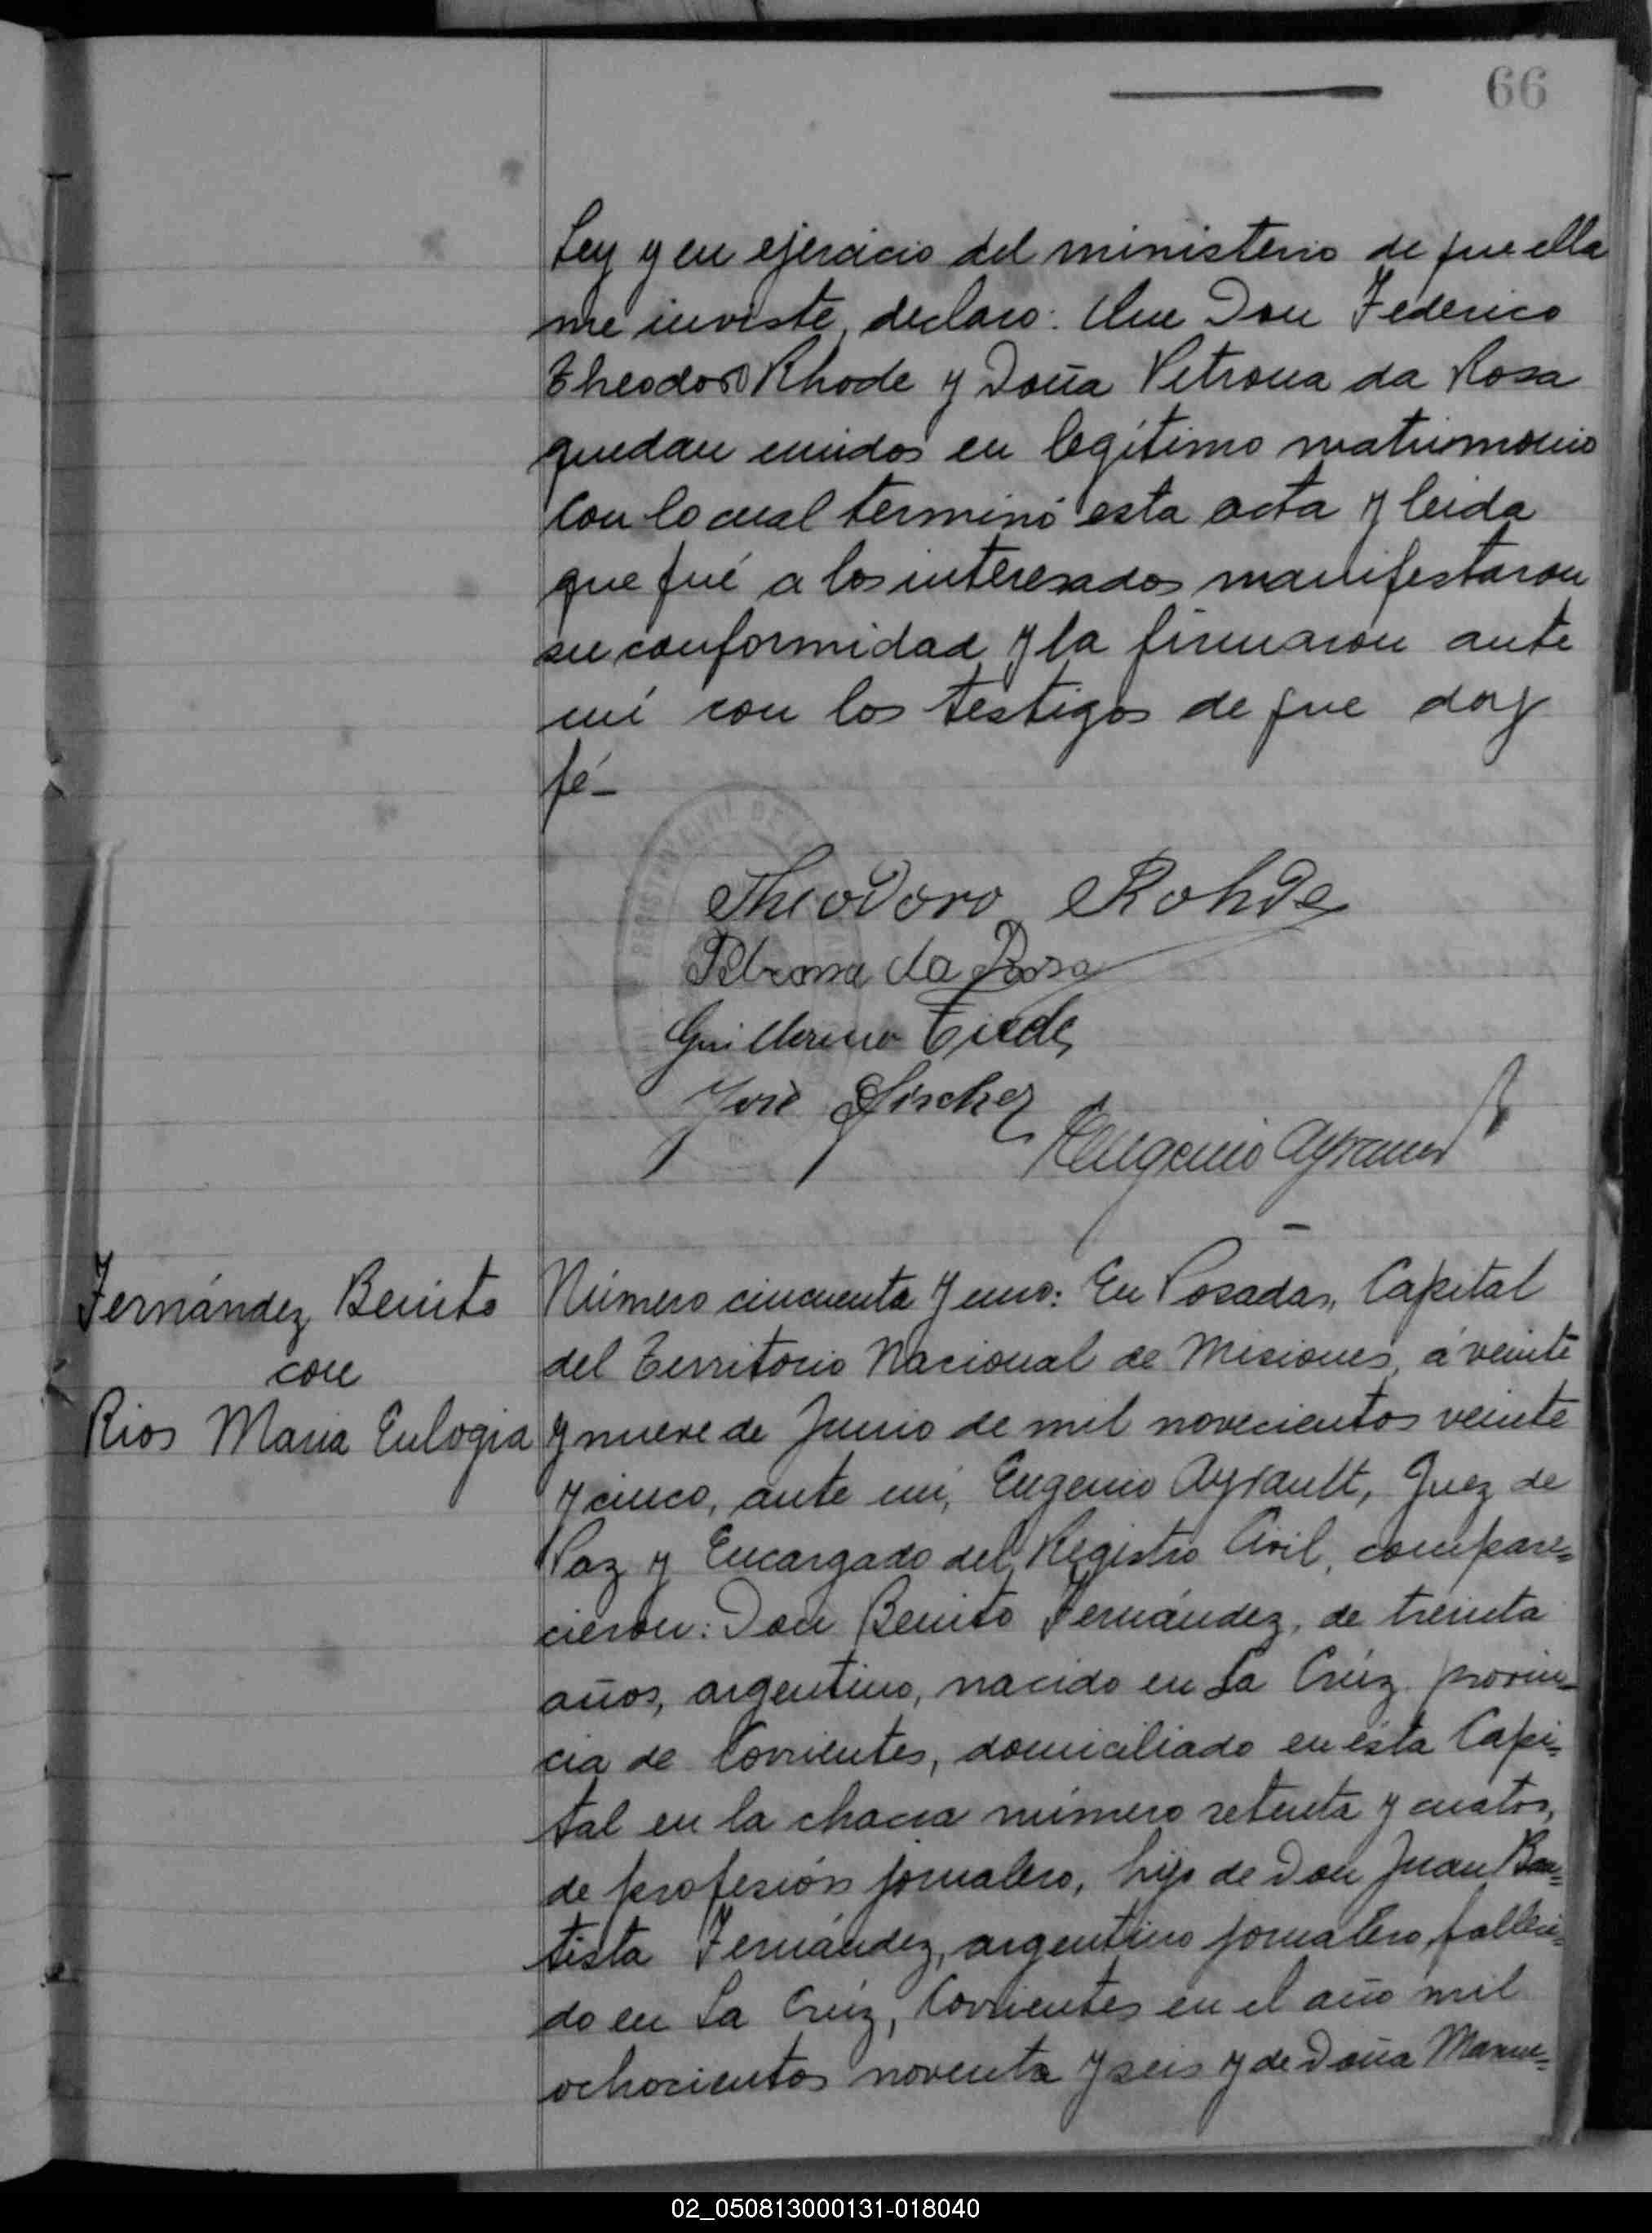 66
Ley y en ejercicio del ministerio de que ella
me inviste, declaro: Que Don Federico
Theodoro Rhode y Doña Petrona da Rosa
quedan unidos en legítimo matrimonio
Con lo cual terminó esta acta y leida
que fué a los interesados manifestaron
su conformidad y la firmaron ante
mí con los testigos de que doy
fé-
Theodoro Rohde
Petrona da Rosa
Guillermo Tiede
José Fischer
Eugenio Ayrault
Fernández Benito
con
Rios Maria Eulogia
Número cincuenta y uno: En Posadas, Capital
del Territorio Nacional de Misiones, á veinte
y nueve de Junio de mil novecientos veinte
y cinco, ante mí, Eugenio Ayrault, Juez de
Paz y Encargado del Registro Civil, compare=
cieron: Don Benito Fernández, de treinta
años, argentino, nacido en La Crúz provin=
cia de Corrientes, domiciliado en ésta Capi=
tal en la chacra número setenta y cuatro,
de profesión jornalero, hijo de Don Juan Bau=
tista Fernández, argentino jornalero, falleci=
do en La Crúz, Corrientes en el año mil
ochocientos noventa y seis y de Doña Manue=
02_050813000131-018040